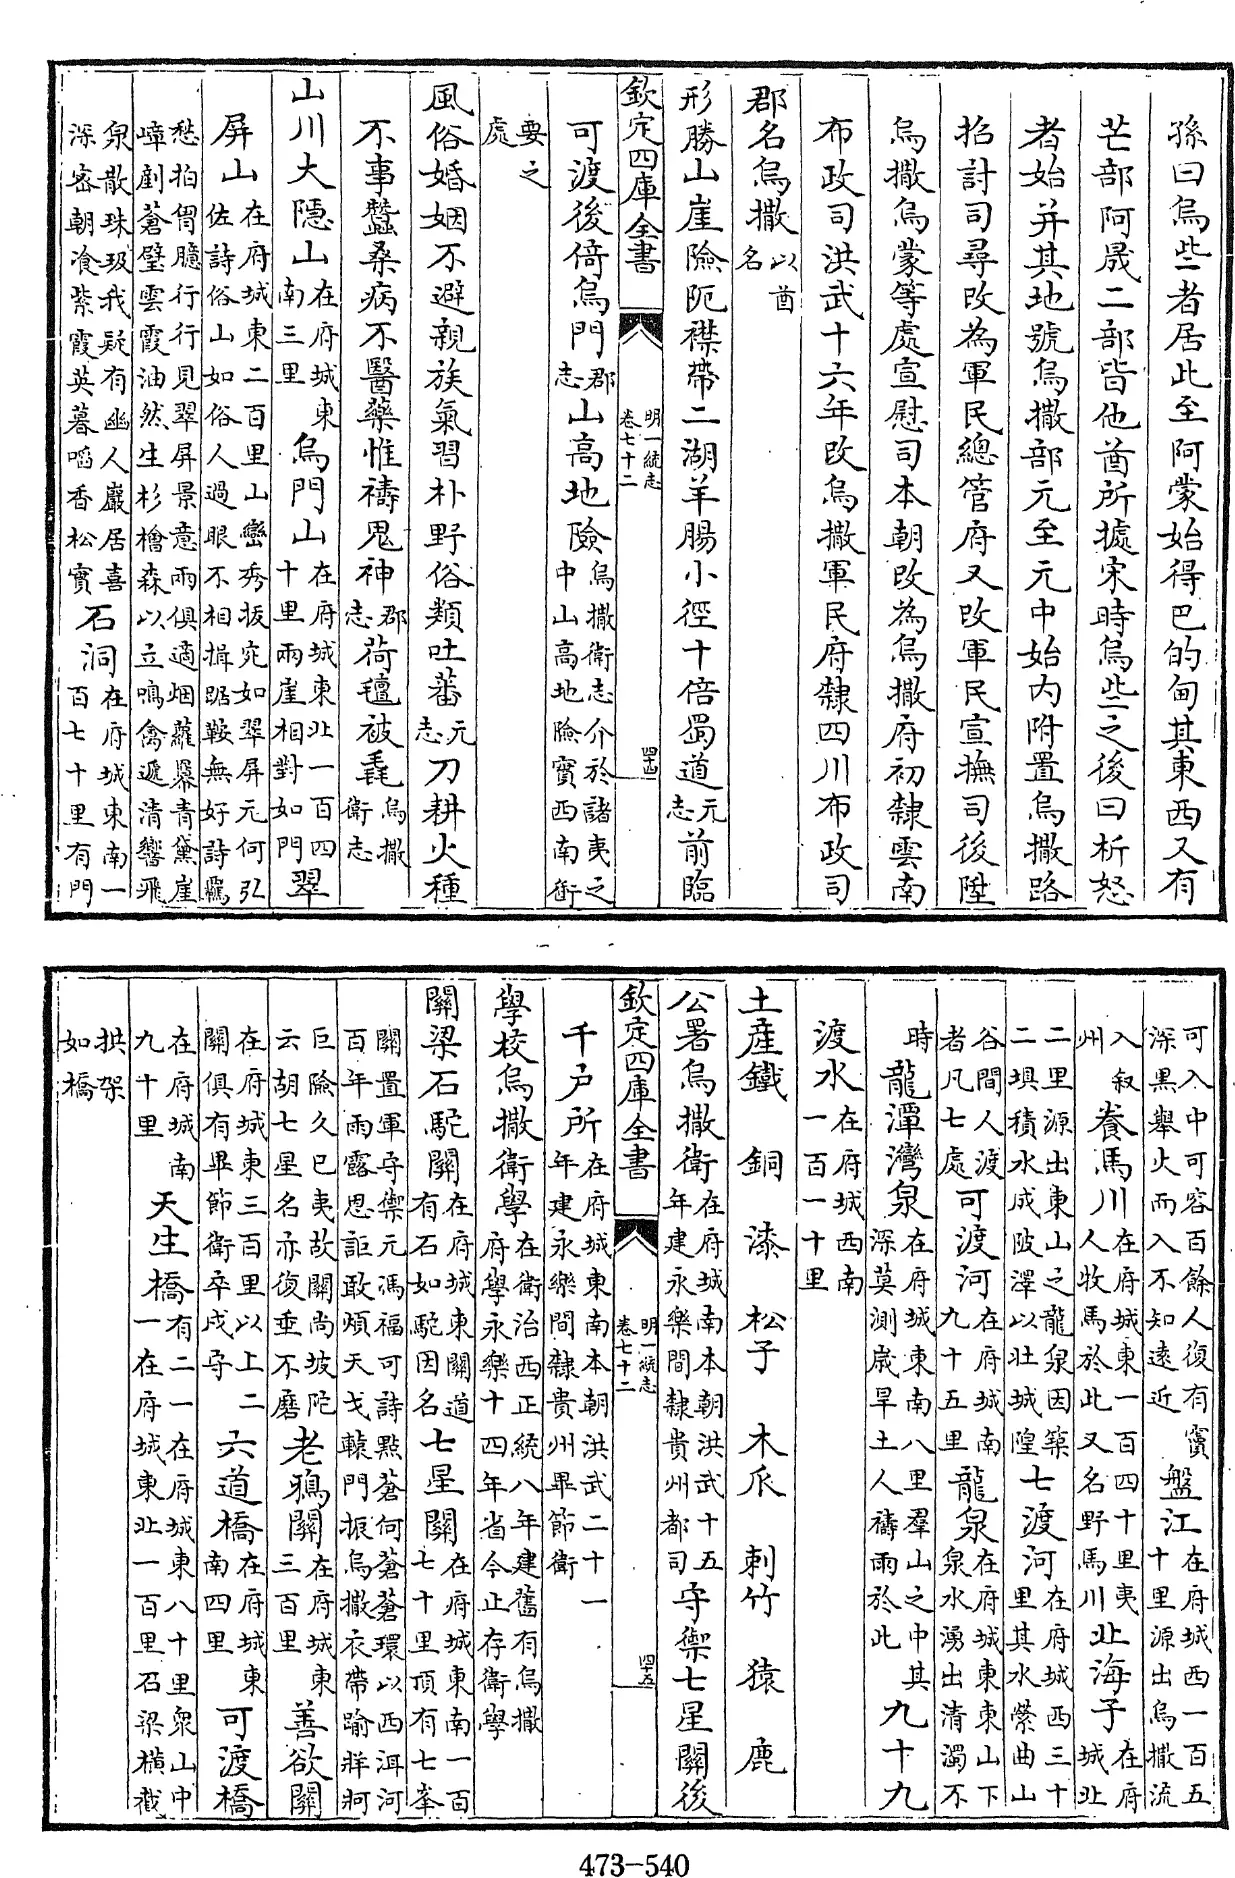 孫曰烏些者居此至阿蒙始得巴的甸其東西又有
芒部阿晟二部皆他酋所據宋時烏些之後曰析怒
者始并其地號烏撒部元至元中始内附置烏撒路
招討司尋改為軍民總管府又改軍民宣撫司後陞
烏撒烏蒙等處宣慰司本朝改為烏撒府初隸雲南
布政司洪武十六年改烏撒軍民府隸四川布政司
郡名烏撒以酋名
形勝山崖險阨襟帶二湖羊腸小徑十倍蜀道元志前臨
欽定四庫全書 明一統志卷七十二 四十四
可渡後倚烏門郡志山高地險烏撒衛志介於諸夷之中山高地險實西南衝
要之處
風俗婚姻不避親族氣習朴野俗類吐蕃元志刀耕火種
不事蠶桑病不醫藥惟禱鬼神郡志荷氊被毳烏撒衛志
山川大隠山在府城東南三里烏門山在府城東北一百四十里兩崖相對如門翠
屏山在府城東二百里山巒秀拔宛如翠屏元何弘佐詩俗山如俗人過眼不相揖踞鞍無好詩羈
愁拍胷臆行行見翠屏景意兩俱適烟蘿羃青黛崖嶂劃蒼璧雲霞油然生杉檜森以立鳴禽遞清響飛
泉散珠玖我疑有幽人巖居喜深密朝飡紫霞英暮啗香松實石洞在府城東南一百七十里有門
可入中可容百餘人復有竇深黑舉火而入不知遠近盤江在府城西一百五十里源出烏撒流
入叙州養馬川在府城東一百四十里夷人牧馬於此又名野馬川北海子在府城北
二里源出東山之龍泉因築二埧積水成陂澤以壯城隍七渡河在府城西三十里其水縈曲山
谷間人渡者凡七處可渡河在府城南九十五里龍泉在府城東東山下泉水湧出清濁不
時龍潭灣泉在府城東南八里羣山之中其深莫測歲旱土人禱雨於此九十九
渡水在府城西南一百一十里
土產鐵 銅 漆 松子 木瓜 刺竹 猿 鹿
公署烏撒衛在府城南本朝洪武十五年建永樂間隸貴州都司守禦七星關後
欽定四庫全書 明一統志卷七十二 四十五
千户所在府城東南本朝洪武二十一年建永樂間隸貴州畢節衛
學校烏撒衛學在衛治西正統八年建舊有烏撒府學永樂十四年省今止存衛學
關梁石駝關在府城東關道有石如駝因名七星關在府城東南一百七十里頂有七峯
關置軍守禦元馮福可詩點蒼何蒼蒼環以西洱河百年雨露恩詎敢煩天戈轅門振烏撒衣帶踰牂牁
巨險久已夷故關尚坡陀云胡七星名亦復垂不磨老鴉關在府城東三百里善欲關
在府城東三百里以上二關俱有畢節衛卒戍守六道橋在府城東南四里可渡橋
在府城南九十里天生橋有二一在府城東八十里衆山中一在府城東北一百里石梁橫截
如拱架橋